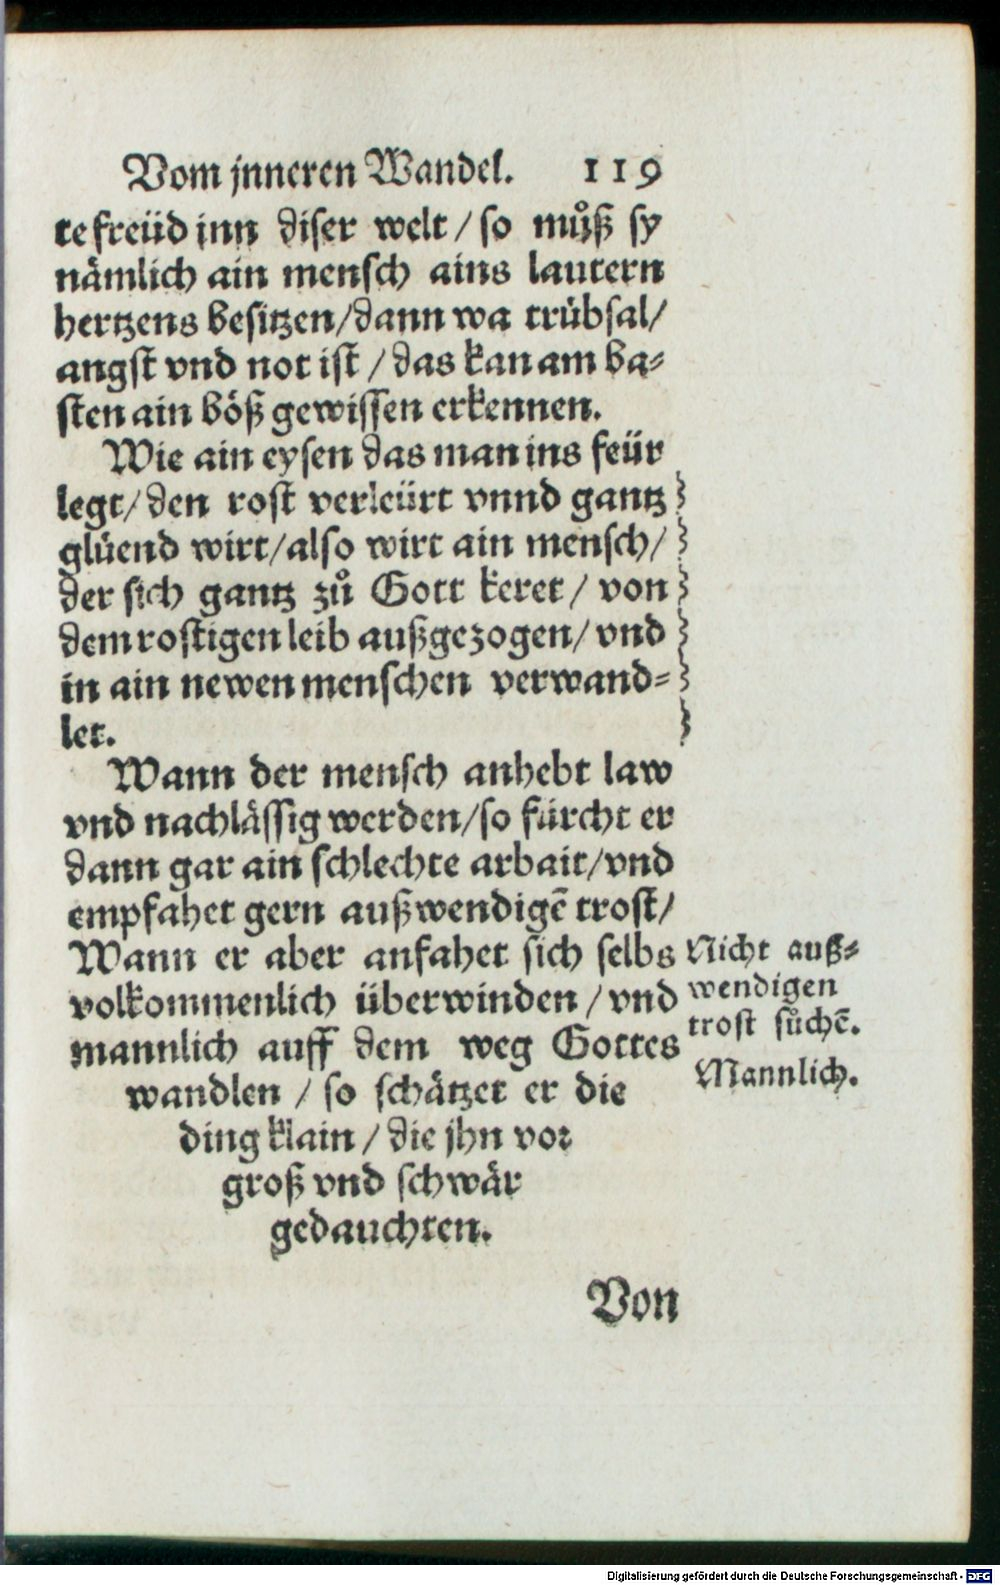 Vom jnneren Wandel. 119
te freüd jnn diser welt / so můß sy
nämlich ain mensch ains lautern
hertzens besitzen/dann wa trübsal/
angst vnd not ist / das kan am ba⸗
sten ain böß gewissen erkennen.
Wie ain eysen das man ins feür
legt/ den rost verleürt vnnd gantz
glüend wirt/also wirt ain mensch/
der sich gantz zů Gott keret / von
dem rostigen leib außgezogen/ vnd
in ain newen menschen verwand⸗
let.
Wann der mensch anhebt law
vnd nachlässig werden/so fürcht er
dann gar ain schlechte arbait/vnd
empfahet gern außwendigẽ trost/
Wann er aber anfahet sich selbs
volkommenlich überwinden / vnd
mannlich auff dem weg Gottes
wandlen / so schätzet er die
ding klain / die jhn vor
groß vnd schwär
gedauchten.
Nicht auß⸗
wendigen
trost sůchẽ.
Mannlich.
Von
Digitalisierung gefördert durch die Deutsche Forschungsgemeinschaft - DFG